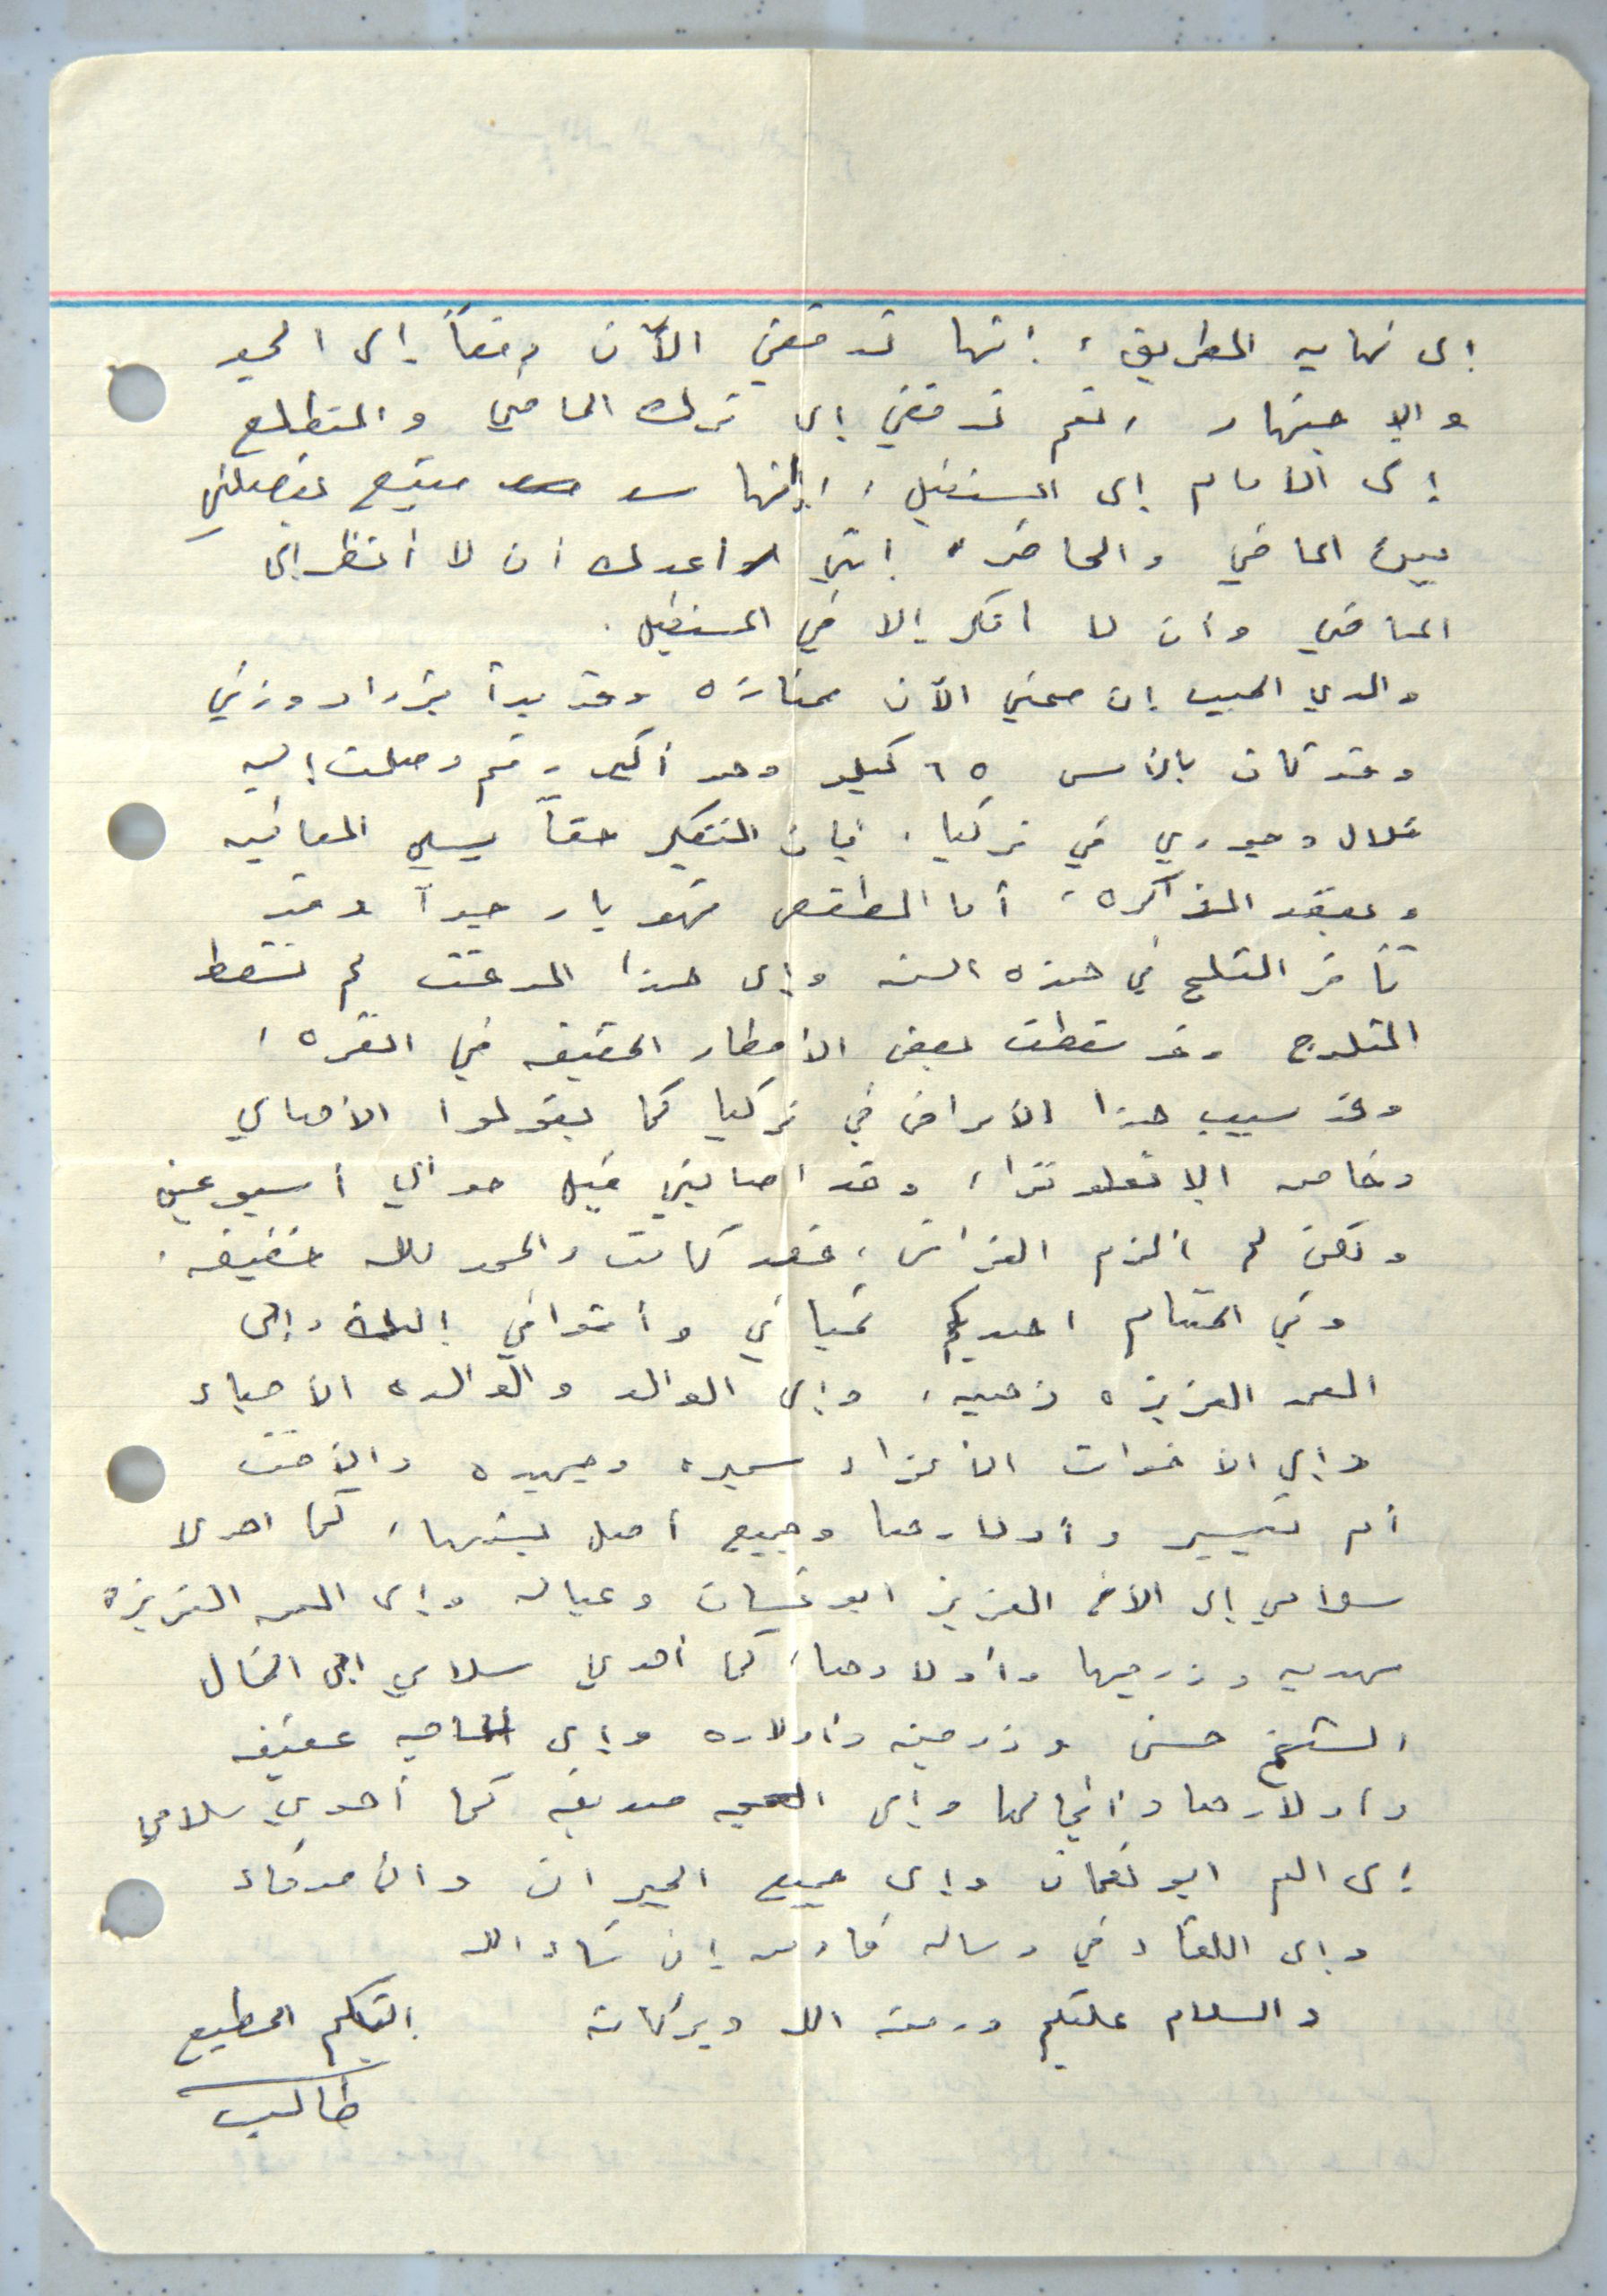 إلى نهايه الطريق، إنها تدفعني الآن دفعاً إلى الجد
والاجتهاد، نعم تدفعني إلى ترك الماضي والتطلع
إلى الأمام إلى المستقبل، إنها
بين الماضي والحاضر، إنني اعدك أن لا أنظر إلى
الماضي وأن لا افكر إلا في المستقبل.
والدي الحبيب إن صحتي الآن ممتازه وقد بدأ يزداد وزني
وقد كان بالأمس ٦٥ كيلو وهو أكبر رقم وصلت إليه
خلال وجودي في تركيا، فإن التفكير حقاً يسلب العافيه
ويفقد الذاكره، أما الطقس فهو بارد جداً وقد
تأخر الثلج في هذه السنه وإلى هذا الوقت لم تسقط
الثلوج وقد سقطت بعض الأمطار الخفيفه في انقره،
وقد سبب هذا الأمراض في تركيا كما يقولوا الأهالي
وخاصه الإنفلونزا، وقد اصابتني قبل حوالي أسبوعين
ولكن لم الزم الفراش، فقد كانت والحمد لله خفيفه.
وفي الختام اهديكم تحياتي وأشواقي إليك وإلى
العمه العزيزه زهيه، وإلى الوالد والوالده الأحباء
وإلى الأخوات الأعزاء سميره وجميده والأخت
أم تيسير وأولادها وجميع أهل بيتها، كما اهدي
سلامي إلى الأخ العزيز ابو غسان وعياله وإلى العمه العزيزه
مهديه وزوجها وأولادها، كما أهدي سلامي إلى الخال
الشيخ حسن وزوجته وأولاده وإلى الحاجه عفيفه
وأولادها وأنجالها وإلى صديقه كما أهدي سلامي
إلى العم ابو نعمان وإلى جميع الجيران والأصدقاء
وإلى اللقاء في رساله قادمه إن شاء الله
والسلام عليكم ورحمة الله وبركاته
إبنكم المطيع
طالب